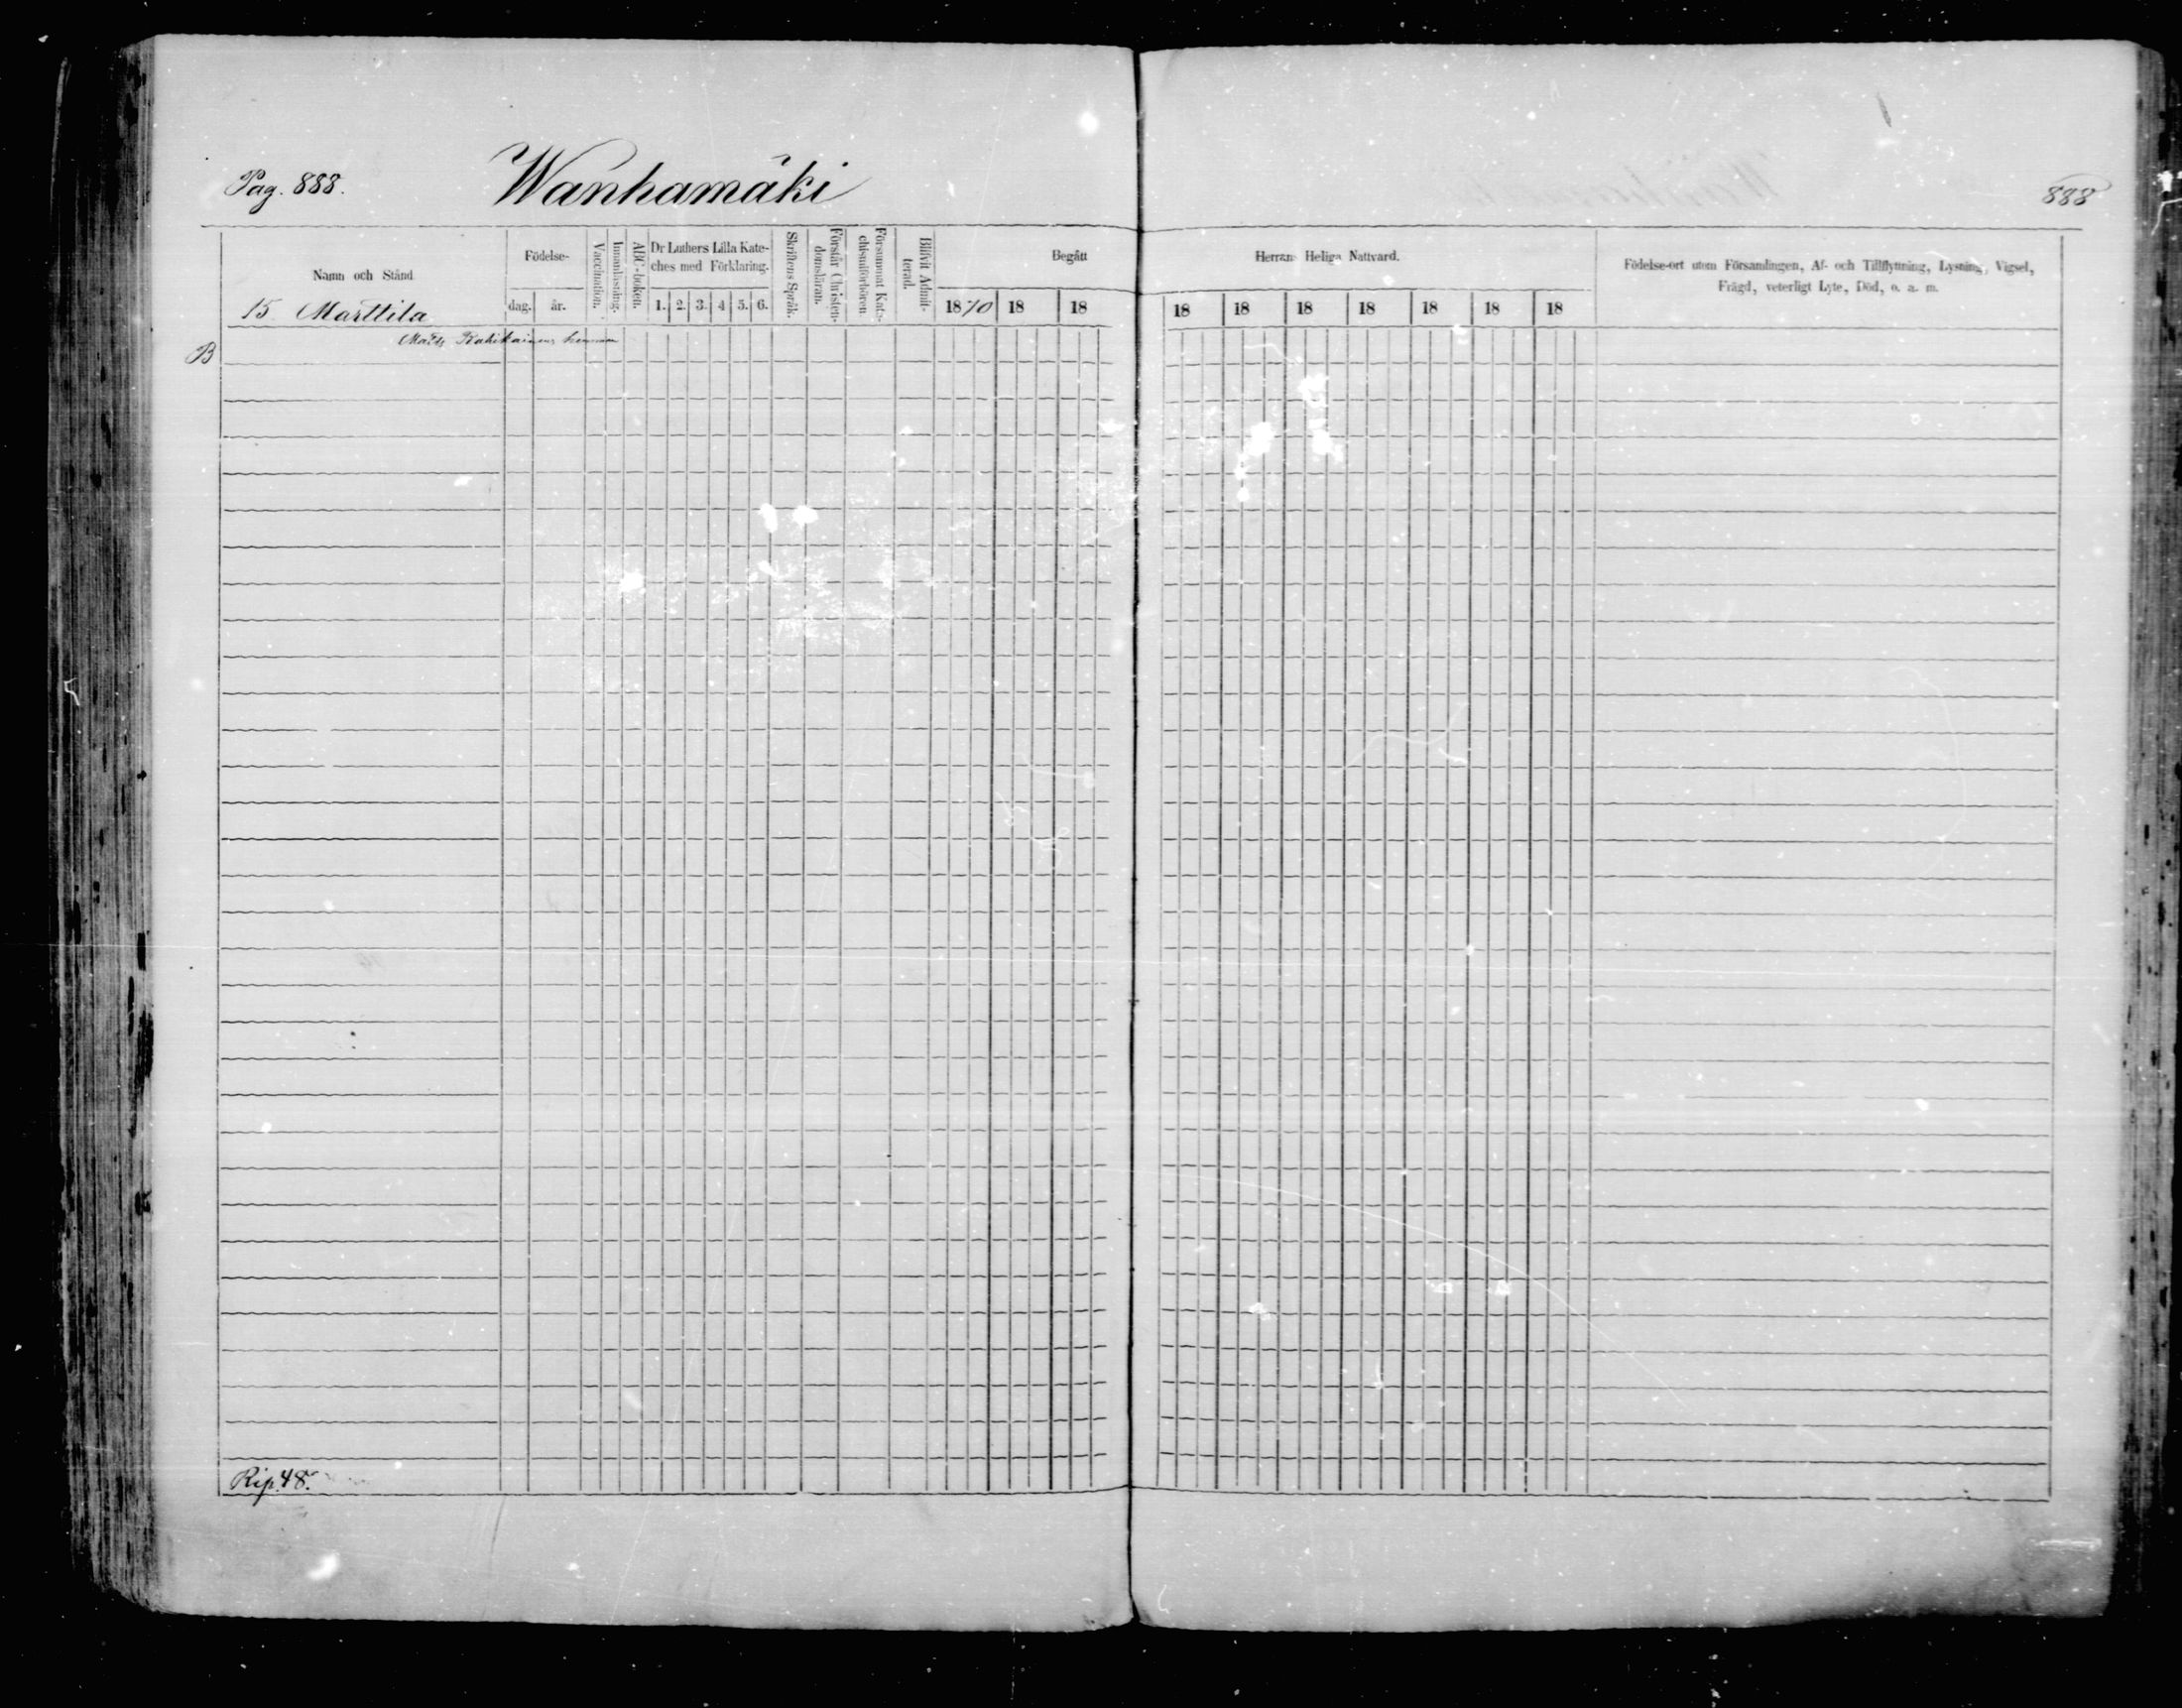 Pag. 888.
Wanhamäki
888
Namn och Stånd
Födelse-
dag.
år.
Vaccination.
Innanläsning.
ABC-boken.
Dr Luthers Lilla Kate-
ches med Förklaring.
1. 2. 3. 4 5. 6.
Skriftens Språk.
Förstår Christen-
domsläran.
Försummat Kate-
chismiförhören
Blifvit Admit-
terad.
Begått
1870 18 18
Herrans Heliga Nattvard.
18 18 18 18 18 18 18
Födelse-ort utom Församlingen, Af- och Tillflyttning, Lysning, Vigsel,
Frägd, veterligt Lyte, Död, o. a. m.
15. Marttila
Matts hemman
B
Rip. 48.